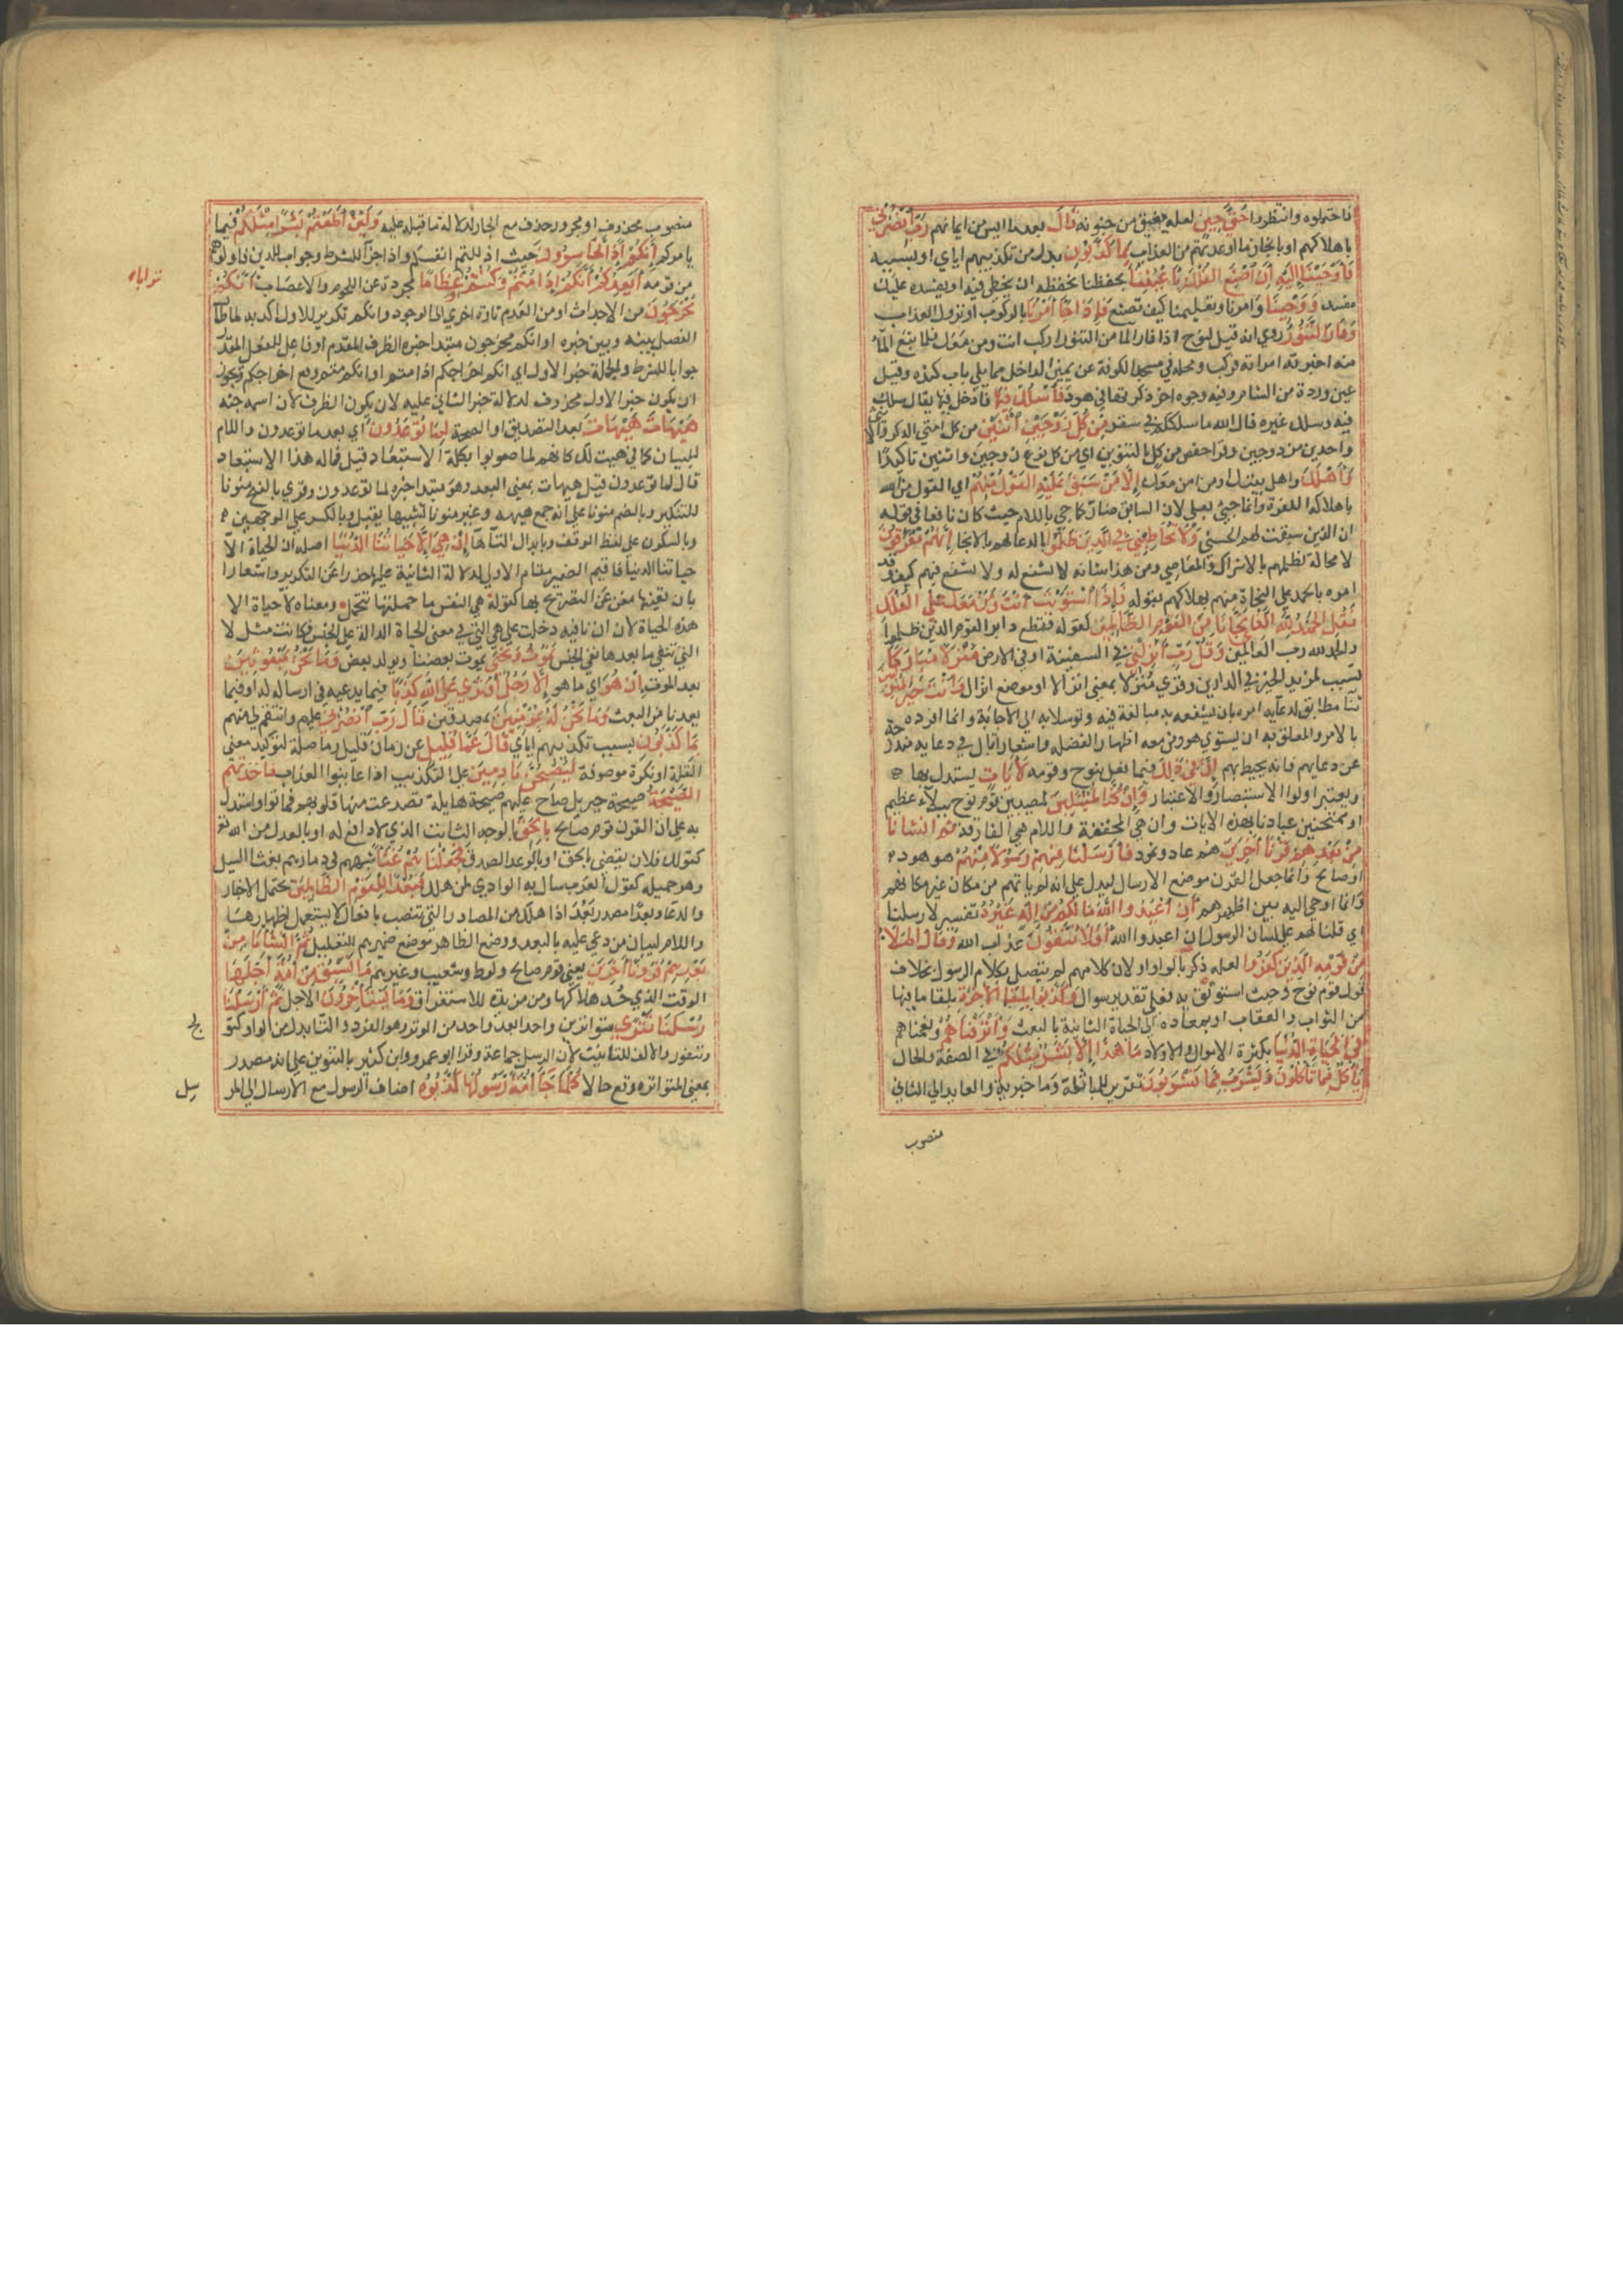 فاحتملوه وانتظروا حتي حين لعله يفيق من جنونه قال بعد ما ايس من ايمانهم رب انصرني
باهلاكهم او بانجاز ما اوعدتهم من العذاب بما كذبون بدل من تكذيبهم اياي او بسببه
فاوحينا اليه ان اصنع الفلك باعيننا بحفظنا نحفظه ان يخطي فيه او يفسده عليك
مفسد ووحينا وامرنا وتعليمنا كيف تصنع فاذا جا امرنا بالركوب او نزول العذاب
وفار التنور روي انه قيل لنوح اذا فار الما من التنور اركب انت ومن معك فلما نبع الما
منه اخبرته امراته فركب ومحله في مسجد الكوفة عن يمين الداخل مما يلي باب كنده وقيل
عين وردة من الشام وفيه وجوه اخر ذكرتها في هود فاسلك فيها فادخل فيها يقال سلك
فيه وسلك غيره قال الله ما سلككم في سقر من كل زوجين اثنين من كل امتي الذكر والانثي
واحدين من دوجين وقرا حفص من كل بالتنوين اي من كل نوع زوجين واثنين تاكيدا
واهلك واهل بيتك او من امن معك الا من سبق عليه القول منهم اي القول من الله
باهلاكه للكفره وانما جيئ بعلي لان السابق ضار كما جي باللام حيث كان نافعا في قوله
ان الذين سبقت لهم الحسني ولا تخاطبني في الذين ظلموا بالدعا لهم بالانجا انهم مغرقون
لا محالة لظلمهم بالاشراك والمعاصي ومن هذا شانه لا يشفع له ولا يشفع فيهم كيف وقد
امره بالحمد علي النجاة منهم بهلاكهم بقوله فاذا استويت انت ومن معك علي الفلك
فقل الحمد لله الذي نجانا من القوم الظالمين كقوله فقطع دابر القوم الذين ظلموا
والحمد لله رب العالمين وقل رب انزلني في السفينة او في الارض منزلا مباركا
يتسبب لمزيد الخير في الدارين وقري منزلا بمعني انزالا او موضع انزال وانت خير المنزلين
ثنا مطابق لدعايه امره بان يشفعه به مبالغة فيه وتوسلا به الي الاجابة وانما افرده
بالامر والمعلق به ان يستوي هو ومن معه اظهارا لفضله واشعارا بان في دعايه مندوحة
عن دعايهم فانه يحيط بهم ان في ذلك فيما فعل بنوح وقومه لايات يستدل بها
ويعتبر اولوا الاستبصار والاعتبار وان كنا لمبتلين لمصيبين قوم نوح ببلاء عظيم
او ممتحنين عبادنا بهذه الايات وان هي المخففة واللام هي الفارقة ثم انشانا
من بعدهم قرنا اخرين هم عاد وثمود فارسلنا فيهم رسولا منهم هو هود
او صالح وانما جعل القرن موضع الارسال ليدل علي انه لم ياتهم من مكان غير مكانهم
وانما اوحي اليه بين اظهرهم ان اعبدوا الله ما لكم من اله غيره تفسير لارسلنا
اي قلنا لهم علي لسان الرسول ان اعبدوا الله افلا تتقون عذاب الله وقال الملا
من قومه الذين كفروا لعله ذكر بالواو لان كلامهم لم يتصل بكلام الرسول بخلاف
قول قوم نوح وحيث استونف به فعلي تقدير سوال وكذبوا بلقا الاخرة بلقا ما فيها
من الثواب والعقاب او بمعادهم الي الحياة الثانية بالبعث واترفناهم ونعمناهم
في الحياة الدنيا بكثرة الاموال والاولاد ما هذا الا بشر مثلكم في الصفة والحال
ياكل مما تاكلون ويشرب مما تشربون تقرير للمماثلة وما خبرية والعايد الي الثاني
منصوب
منصوب محذوف او مجرور حذف مع الجار لدلالة ما قبله عليه ولين اطعتم بشرا مثلكم فيما
يامركم انكم اذا لخاسرون حيث اذللتم انفسكم واذا جزا للشرط وجواب للذين قاولوهم
من قومه ايعدكم انكم اذا متم وكنتم عظاما مجردة عن اللحوم والاعصاب انكم
ترابا
مخرجون من الاجداث او من العدم تارة اخري الي الوجود وانكم تكرير للاول اكد به لما طال
الفصل بينه وبين خبره او انكم مخرجون مبتدا خبره الظرف المقدم او فاعل للفعل المقدر
جوابا للشرط والجملة خبر الاول اي انكم اخراجكم اذا متم او انكم متم وقع اخراجكم ويجوز
ان يكون خبر الاول محذوف لدلالة خبر الثاني عليه لان يكون الظرف لان اسمه جثه
هيهات هيهات بعد التصديق او الصحة لما توعدون اي بعد ما توعدون واللام
للبيان كما في هيت لك كانهم لما صوتوا بكلمة الاستبعاد قيل فما له هذا الاستبعاد
قال لما توعدون وقيل هيهات بمعني البعد وهو مبتدا خبره لما توعدون وقري بالفتح منونا
للتنكير وبالضم منونا علي انه جمع هيهه وغير منون تشبيها بقبل وبالكسر علي الوجهين
وبالسكون علي لفظ الوقف وبابدال التا ها ان هي الا حياتنا الدنيا اصله ان الحياة الا
حياتنا الدنيا فاقيم الضمير مقام الاولي لدلالة الثانية عليها حذرا عن التكرير واشعارا
بان تعينها مغن عن التصريح بها كقوله هي النفس ما حملتها تتحمل ومعناه لا حياة الا
هذه الحياة لان ان نافيه دخلت علي هي التي في معني الحياة الدالة علي الجنس فكانت مثل لا
التي تنفي ما بعدها نفي الجنس نموت ونحيي يموت بعضنا ويولد بعض وما نحن بمبعوثين
بعد الموت ان هو اي ما هو الا رجل افتري علي الله كذبا فيما يدعيه في ارساله له او فيما
يعدنا من البعث وما نحن له بمومنين بمصدقين قال رب انصرني عليهم وانتقم لي منهم
بما كذبون بسبب تكذيبهم اياي قال عما قليل عن زمان قليل وما صلة لتوكيد معني
القلة او نكرة موصوفة ليصبحن نادمين علي التكذيب اذا عاينوا العذاب فاخذتهم
الصيحة صيحة جبريل صاح عليهم صيحة هايلة تصدعت منها قلوبهم فماتوا واستدل
به علي ان القرن قوم صالح بالحق بالوجه الثابت الذي لا دافع له او بالعدل من الله تع
كقولك فلان يقضي بالحق او بالوعد الصدق فجعلناهم غثا شبههم في دمارهم بغثا السيل
وهو حميله كقول العرب سال به الوادي لمن هلك فبعدا للقوم الظالمين يحتمل الاخبار
والدعا وبعدا مصدر بعد اذا هلك من المصادر التي تنصب بافعال لا يستعمل اظهارها
واللام لبيان من دعي عليه بالبعد ووضع الظاهر موضع ضميرهم للتعليل ثم انشانا من
بعدهم قرونا اخرين يعني قوم صالح ولوط وشعيب وغيرهم ما تسبق من امة اجلها
الوقت الذي حد لهلاكها ومن مزيدة للاستغراق وما يستاخرون الاجل ثم ارسلنا
رسلنا تتري متواترين واحدا بعد واحد من الوتر وهو الفرد والتا بدل من الواو كتو
لج
وتيقور والالف للتانيث لان الرسل جماعة وقرا ابو عمرو وابن كثير بالتنوين علي انه مصدر
بمعني المتواتره وقع حالا كلما جا امة رسولها كذبوه اضاف الرسول مع الارسال الي المر
سل